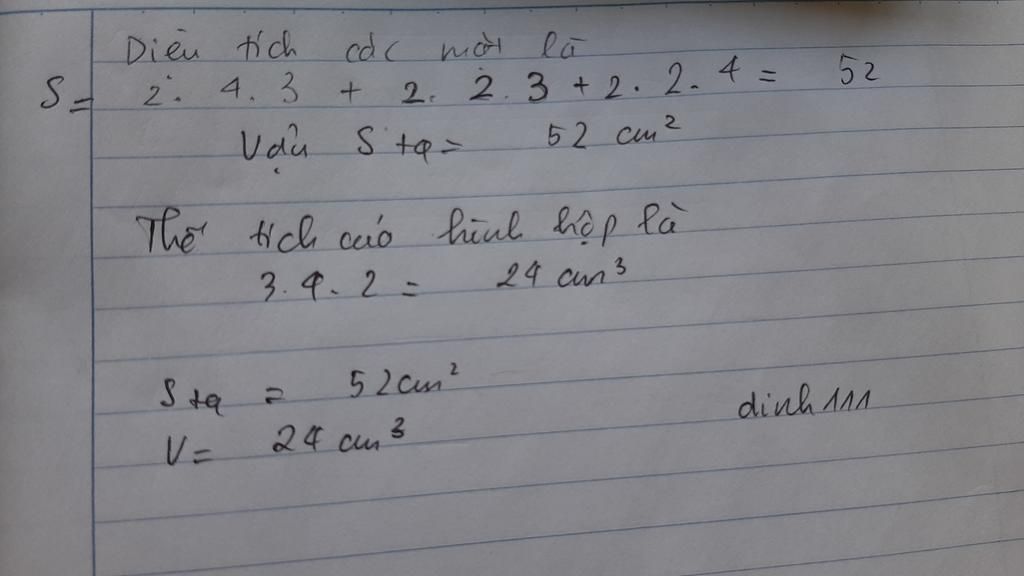 Diện tích các mặt là
S = 2. 4. 3 + 2. 2. 3 + 2. 2. 4 = 52
Vậy S tq = 52 cm²
Thể tích của hình hộp là
3. 4. 2 = 24 cm³
S tq = 52 cm²
V = 24 cm³
dinh111